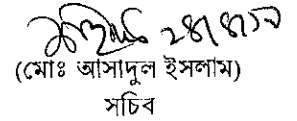 ২৪/৪/১৯
(মোঃ আসাদুল ইসলাম)
সচিব